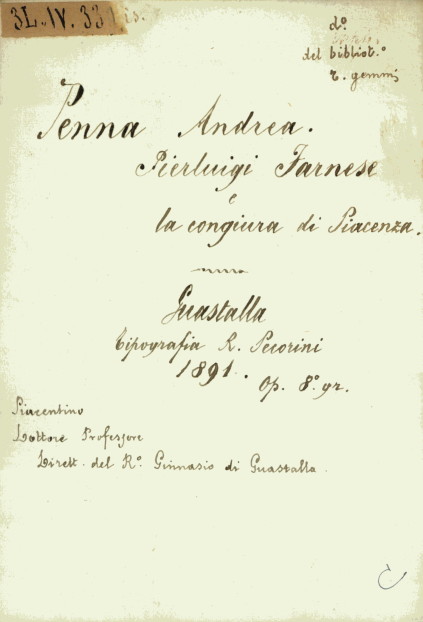 3L.IV.33
d.º
del bibliot.º
T. Gemmi
Penna Andrea.
Pierluigi Farnese
e
la congiura di Piacenza.
Guastalla
Tipografia R. Pecorini
1891.
Op. 8.º gr.
Piacentino
Dottore Professore
Dirett. del R.º Ginnasio di Guastalla.